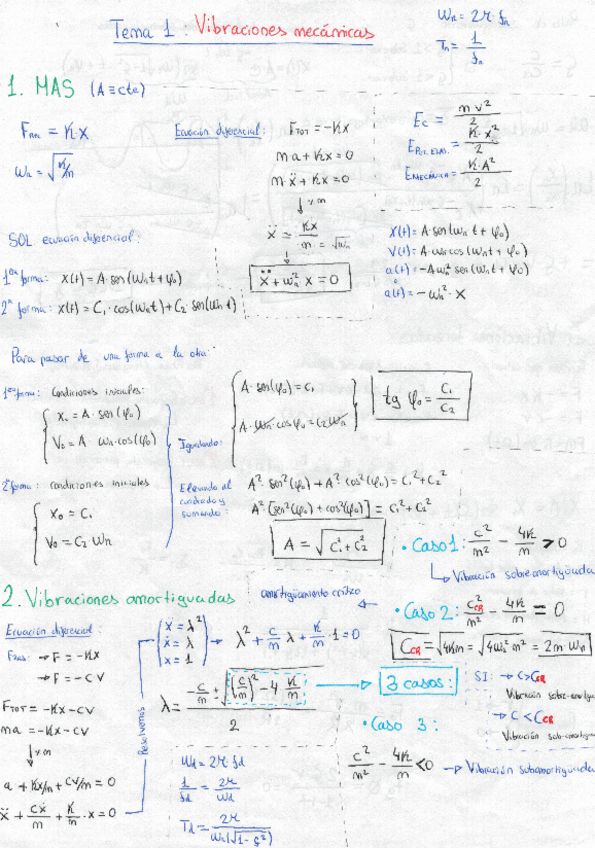 Tema 1: Vibraciones mecánicas
Wn = 2π · fn
Tn = 1/fn
1. MAS (A ≡ cte)
Frec = K·x
Wn = √K/m
Ecuación diferencial:
FTOT = -Kx
ma + Kx = 0
mẍ + Kx = 0
↓ x m
ẍ = Kx/m = √Wn
↓
ẍ + wn² x = 0
Ec = m v²/2
EPOT. ELAS. = K·x²/2
EMECÁNICA = K·A²/2
SOL ecuación diferencial:
1ª forma: x(t) = A·sen(Wnt + φ0)
2ª forma: x(t) = C1·cos(Wnt) + C2·sen(Wn t)
x(t) = A·sen(Wn t + φ0)
V(t) = A·Wn·cos(Wnt + φ0)
a(t) = -AWn² sen(Wnt + φ0)
o
a(t) = -Wn²·x
Para pasar de una forma a la otra:
1ª forma: Condiciones iniciales:
x0 = A·sen(φ0)
V0 = A·Wn·cos(φ0)
2ª forma: condiciones iniciales
x0 = C1
V0 = C2·Wn
Igualando:
A·sen(φ0) = C1
A·Wn·cos φ0 = C2 Wn
tg φ0 = C1/C2
Elevando al cuadrado y sumando:
A²·sen²(φ0) + A² cos²(φ0) = C1² + C2²
A²·[sen²(φ0) + cos²(φ0)] = C1² + C2²
A = √C1² + C2²
• Caso 1: c²/m² - 4K/m > 0
↳ Vibración sobreamortiguada
2. Vibraciones amortiguadas
amortiguamiento crítico
← • Caso 2: c²CR/m² - 4K/m = 0
CCR = √4Km = √4Wn² m² = 2m·Wn
Ecuación diferencial:
→ F = -Kx
→ F = -CV
FTOT = -Kx - CV
ma = -Kx - CV
↓ x m
a + Kx/m + CV/m = 0
ẍ + Cẋ/m + K/m·x = 0
Resolvemos
ẍ = λ²
ẋ = λ
x = 1
→ λ² + C/m λ + K/m·1 = 0
λ = (-C/m ± √(C/m)² - 4 K/m)/2
→ 3 casos:
SI: → C > CCR
Vibración sobre-amortigu
→ C < CCR
Vibración sub-amortigua
• Caso 3:
c²/m² - 4K/m < 0 → Vibración subamortiguada
Wd = 2π fd
1/fd = 2π/Wd
Td = 2π/Wn(√1-ξ²)